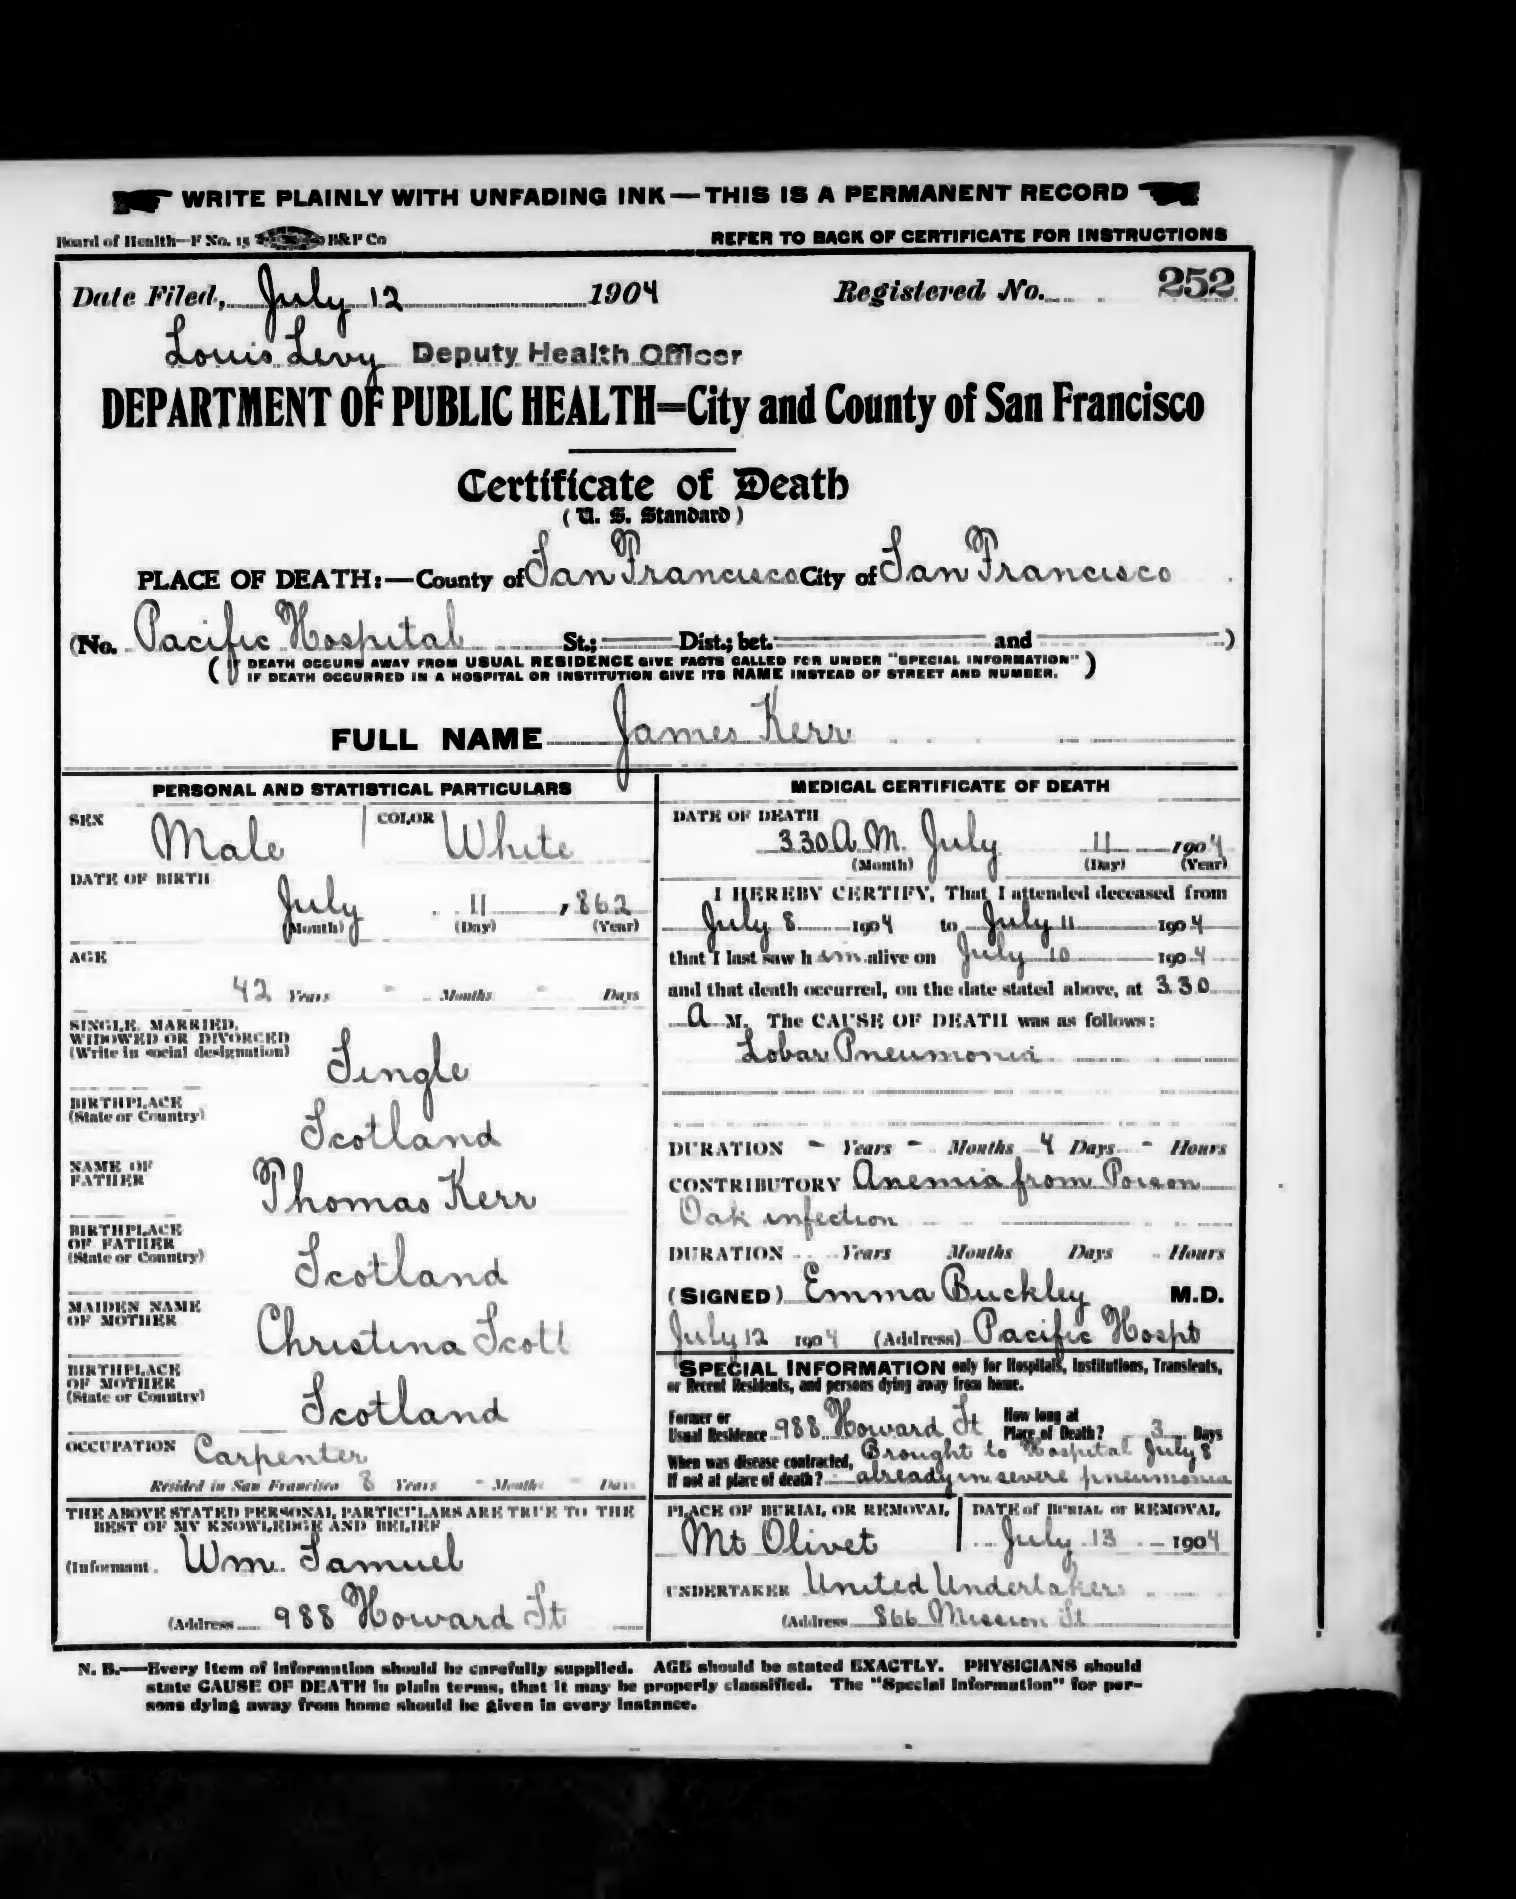 WRITE PLAINLY WITH UNFADING INK — THIS IS A PERMANENT RECORD
Board of Health—F No. 15 B&P Co
REFER TO BACK OF CERTIFICATE FOR INSTRUCTIONS
Date Filed, July 12 1904 Registered No. 252
Louis Levy Deputy Health Officer
DEPARTMENT OF PUBLIC HEALTH—City and County of San Francisco
Certificate of Death
(U. S. Standard)
PLACE OF DEATH:—County of San Francisco City of San Francisco
(No. Pacific Hospital St.; Dist.; bet. and )
(IF DEATH OCCURS AWAY FROM USUAL RESIDENCE GIVE FACTS CALLED FOR UNDER "SPECIAL INFORMATION"
IF DEATH OCCURRED IN A HOSPITAL OR INSTITUTION GIVE ITS NAME INSTEAD OF STREET AND NUMBER.)
FULL NAME James Kerr
PERSONAL AND STATISTICAL PARTICULARS
SEX Male COLOR White
DATE OF BIRTH
July 11 , 862
(Month) (Day) (Year)
AGE
42 Years - Months - Days
SINGLE, MARRIED,
WIDOWED OR DIVORCED
(Write in social designation) Single
BIRTHPLACE
(State or Country) Scotland
NAME OF
FATHER Thomas Kerr
BIRTHPLACE
OF FATHER
(State or Country) Scotland
MAIDEN NAME
OF MOTHER Christina Scott
BIRTHPLACE
OF MOTHER
(State or Country) Scotland
OCCUPATION Carpenter
Resided in San Francisco 8 Years - Months - Days
THE ABOVE STATED PERSONAL PARTICULARS ARE TRUE TO THE
BEST OF MY KNOWLEDGE AND BELIEF
(Informant Wm. Samuel
(Address 988 Howard St
MEDICAL CERTIFICATE OF DEATH
DATE OF DEATH
3 30 A. M. July 11 1904
(Month) (Day) (Year)
I HEREBY CERTIFY, That I attended deceased from
July 8 1904 to July 11 1904
that I last saw him alive on July 10 1904
and that death occurred, on the date stated above, at 3 30
A M. The CAUSE OF DEATH was as follows:
Lobar Pneumonia
DURATION - Years - Months 4 Days - Hours
CONTRIBUTORY Anemia from Poison
Oak infection
DURATION Years Months Days Hours
(SIGNED) Emma Buckley M.D.
July 12 1904 (Address) Pacific Hospt
SPECIAL INFORMATION only for Hospitals, Institutions, Transients,
or Recent Residents, and persons dying away from home.
Former or
Usual Residence 988 Howard St How long at
Place of Death? 3 Days
When was disease contracted, Brought to Hospital July 8
If not at place of death? already in severe pneumonia
PLACE OF BURIAL OR REMOVAL, DATE of BURIAL or REMOVAL,
Mt Olivet July 13 1904
UNDERTAKER United Undertakers
(Address 866 Mission St
N. B.—Every item of information should be carefully supplied. AGE should be stated EXACTLY. PHYSICIANS should
state CAUSE OF DEATH in plain terms, that it may be properly classified. The "Special Information" for per-
sons dying away from home should be given in every instance.